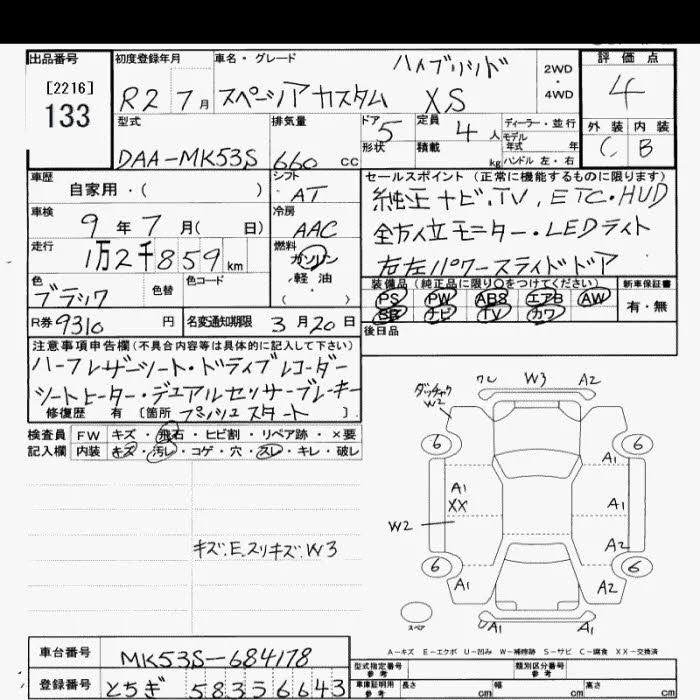 出品番号 初度登録年月 車名・グレード ハイブリッド 2WD ・ 4WD 評価点
[2216]
133
R2 7月 スペーシアカスタム XS 4
型式 排気量 ドア 5 定員 4人 ディーラー・並行
モデル年式 年
外装 内装
DAA-MK53S 660 cc 形状 積載 kg ハンドル 左・右 C B
車歴 シフト セールスポイント(正常に機能するものに限ります)
自家用・( ) AT 純正ナビ.TV, ETC・HUD
車検 冷房 全方位モニター・LEDライト
9年 7月( 日) AAC
走行 燃料 右左パワースライドドア
1万2千859km ガソリン
軽油
・( )
装備品(純正品に限り○をつけてください) 新車保証書
色 色替 色コード PS PW ABS エアB AW 有・無
ブラック SR ナビ TV カワ
R券 9310 円 名変通知期限 3月20日 後日品
注意事項申告欄(不具合内容等は具体的に記入して下さい)
ハーフレザーシート・ドライブレコーダー
シートヒーター・デュアルセンサーブレーキ
修復歴 有 [箇所 プッシュスタート ].
検査員 FW キズ・飛石・ヒビ割・リペア跡・×要
記入欄 内装 キズ・汚レ・コゲ・穴・スレ・キレ・破レ
キズ.E.スリキズ.W3
ダッチャク W2 W3 A2
6 6
A1
A1 XX A1
W2
A2
6 6
A1 A2
スペア A1 A1
A=キズ E=エクボ U=凹み W=補修跡 S=サビ C=腐食 XX=交換済
車台番号 MK53S-684178
型式指定番号 参考 類別区分番号 参考
登録番号 とちぎ 583 56643
車庫証明用 参考 長さ cm 幅 cm 高さ cm